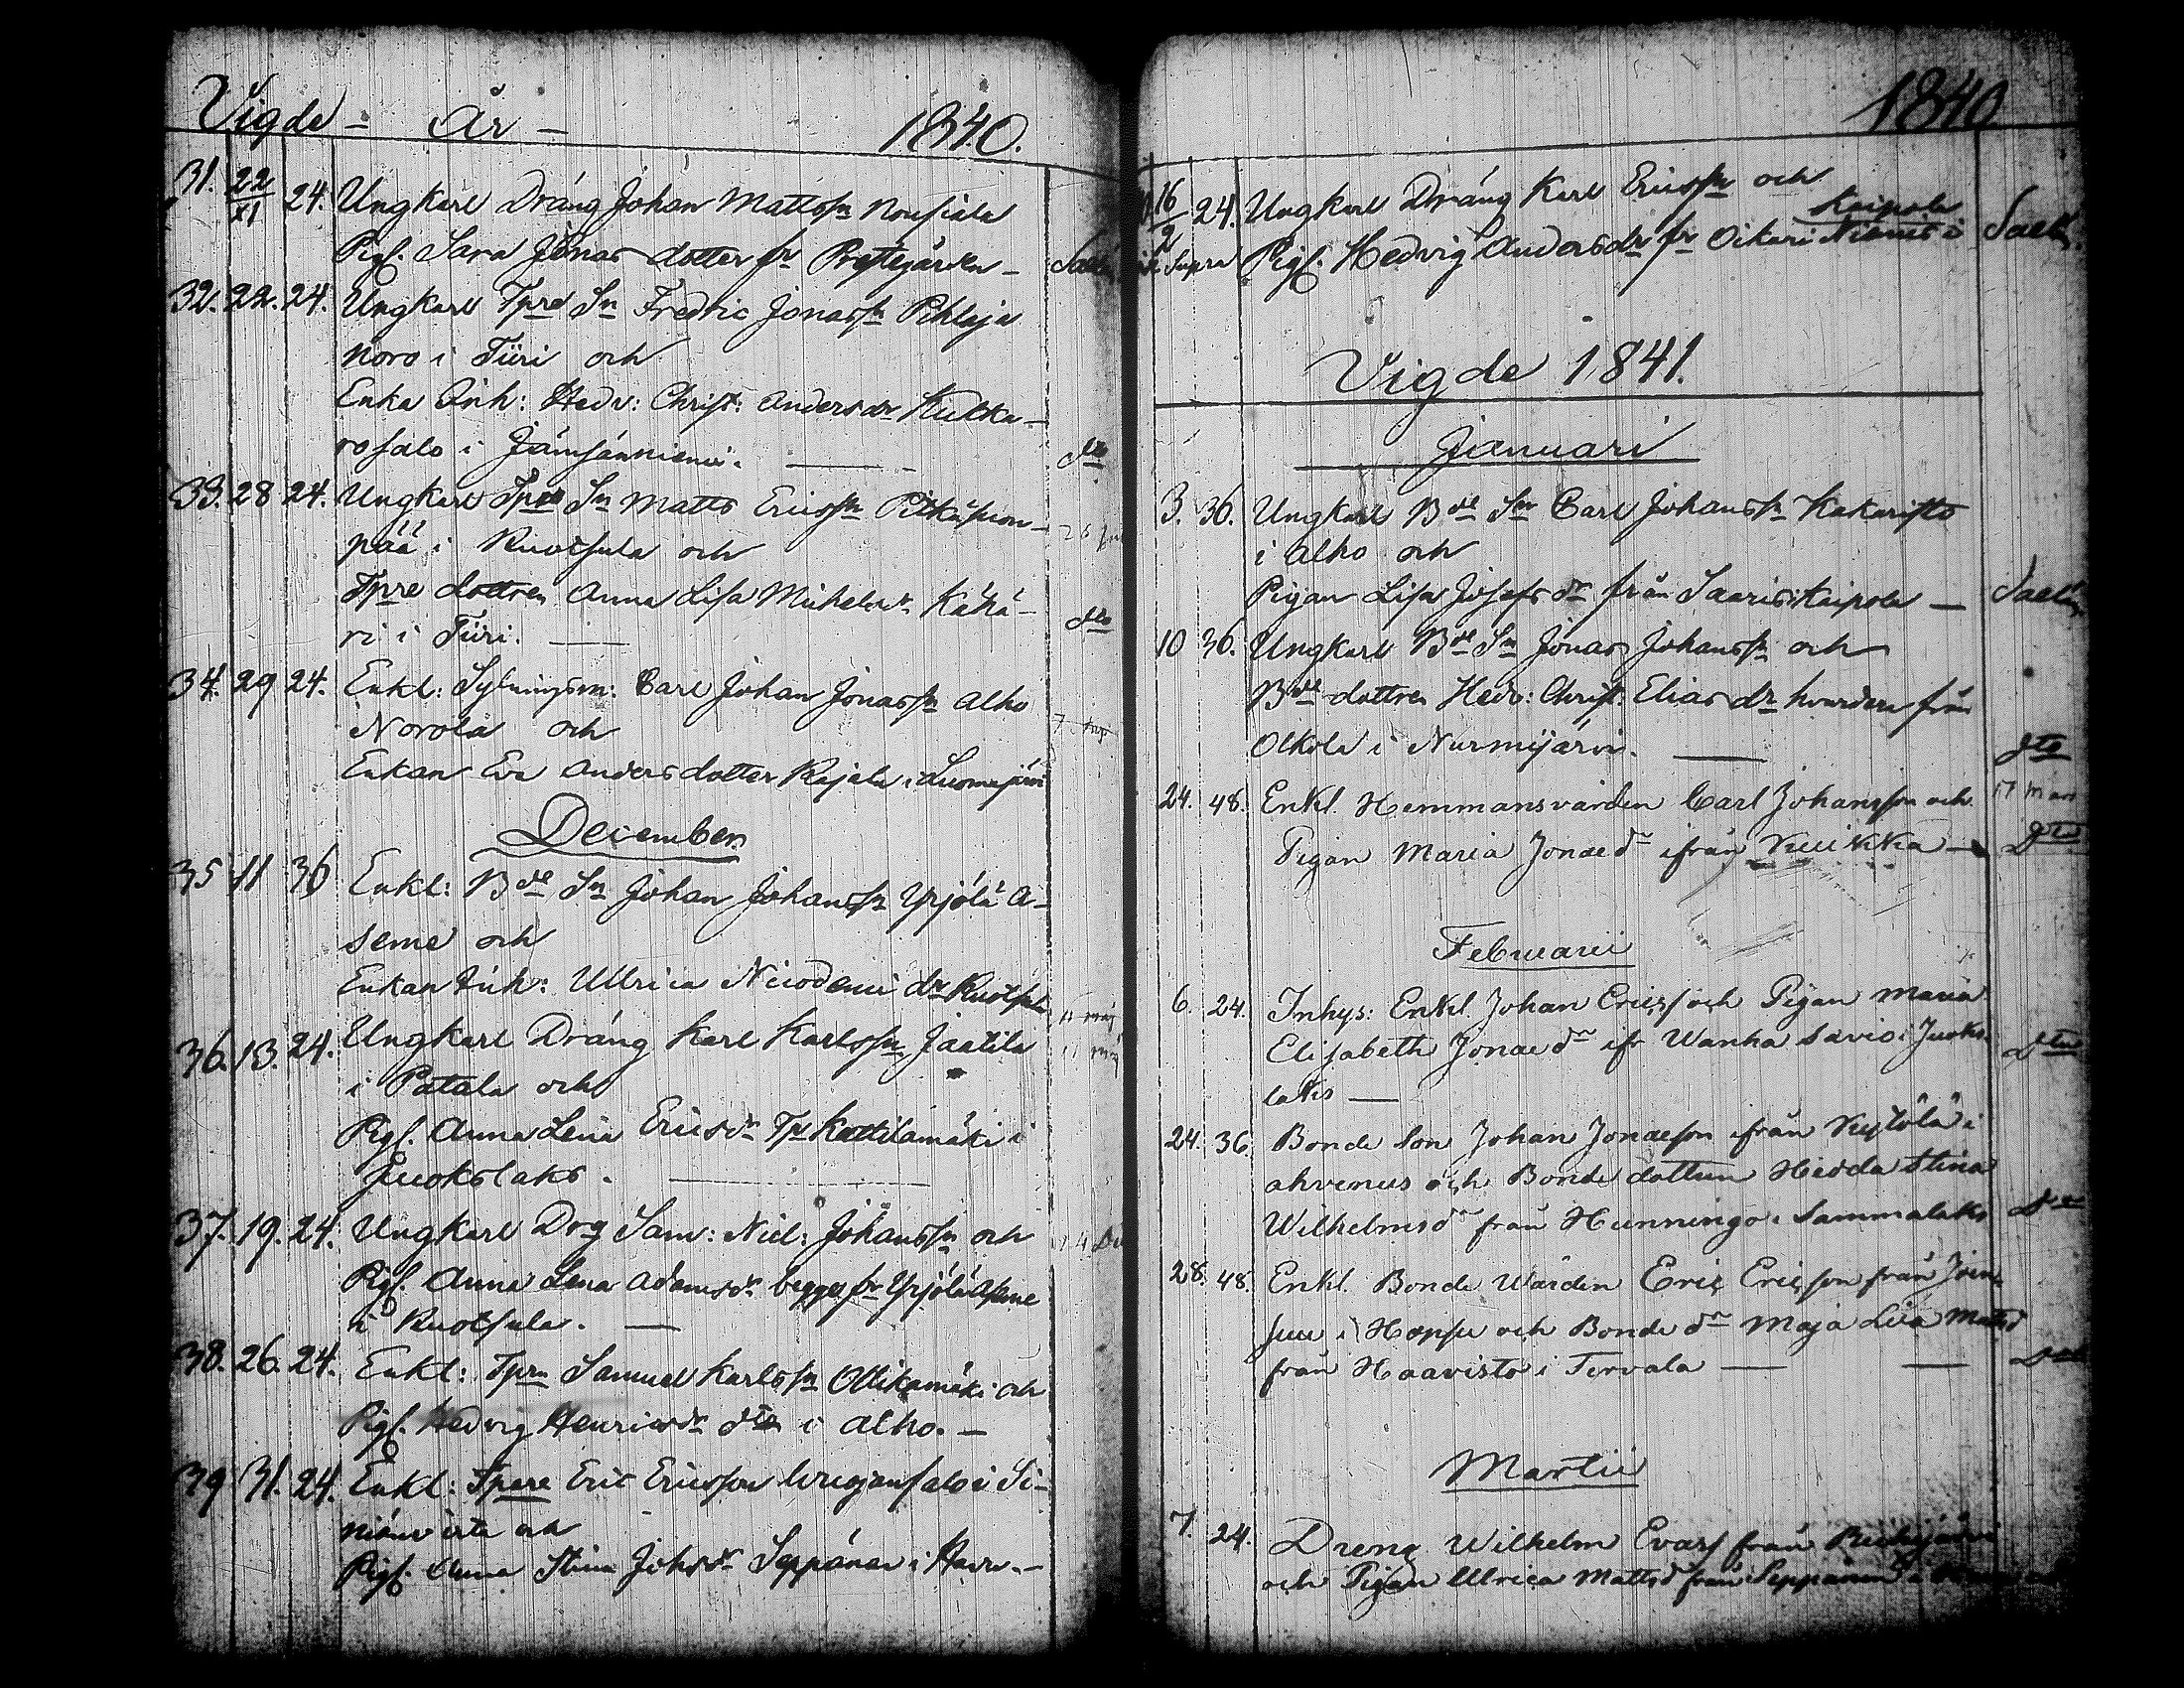 Vigde - År - 1840.
31. 22/XI 24. Ungkarl Dräng Johan Mattssn Nousiala
Pigf. Sara Jonas dotter fr Prestegården -
32. 22. 24. Ungkarl Tpre Sn Fredric Jonassn Pihlaja
noro i Tiiri och
Enka Inh: Hedv: Christ: Anders dr
rosalo i Jämsänniemi. dto
33. 28 24. Ungkarl Tpre Sn Matts Ericssn
pää i Ruotsula och
Tpre dottren Anna Lisa Michelsdr Kähä-
ri i Tiiri. dto
34. 29 24. Enkl: Sytningsm: Carl Johan Jonassn Alho
Norola och
Enkan Eva Anders dotter Rajala i Luomejärvi
December
35 11 36 Enkl: Bde Sn Johan Johanssn Yrjölä A-
seme och
Enkan Inh: Ullrica Nicodemi dr Ruotsula
36. 13. 24. Ungkarl Dräng Karl Karlssn Jaatila
i Patala och
Pigf. Anna Lena Ericsdr Tp Kattilamäki i
Juokslaks.
37. 19. 24. Ungkarl Drg Sam: Niel: Johanssn och
Pigf. Anna Lena Adamsdr begge fr Yrjölä Aseme
i Ruotsula.
38. 26. 24. Enkl: Tprn Samuel Karlssn Ollikamäki och
Pigf. Hedvig Henricsdr dto i Alho. -
39 31. 24. Enkl: Tpare Eric Ericsson i Si-
och
Pigf. Anna Stina Johsdr Seppänen i
1840
16/2 24. Ungkarl Dräng Karl Ericssn och
Kaipola
Supra Pigf. Hedvig Andersdr fr Oikari Niemis i
Vigde 1841.
Januari
3. 36. Ungkarl Bde Sn Carl Johanssn Kakaristo
i Alho och
Pigan Lisa Josefs dr från Saaris i Kaipola -
10 36. Ungkarl Bde Sn Jonas Johanssn och
Bde dottren Hedv: Christ: Elias dr hvardera från
Olkola i Nurmijärvi. dto
17 Mars
24. 48. Enkl. Hemmansvärden Carl Johansson och
Pigan Maria Jonaedr ifrån Kuikka - Dto
Februarii
6. 24. Inhys: Enkl. Johan Ericss och Pigan Maria
Elisabeth Jonaedr ifr Wanha Savio i Juoks-
laks - Dto
24. 36. Bonde Son Johan Jonaeson ifrån i
Ahvenus och Bonde dottren Hedda Stina
Wilhelmsdr från Hunningo i Sammalaks Dto
28. 48. Enkl. Bonde Wärden Eric Ericsson från
suu i Hopsu och Bonde dr Maja Lisa Matsd
från Haavisto i Tervala - Dto
Martii
7. 24. Dreng Wilhelm Evars från
och Pigan Ulrica Mattsd från Seppänen i